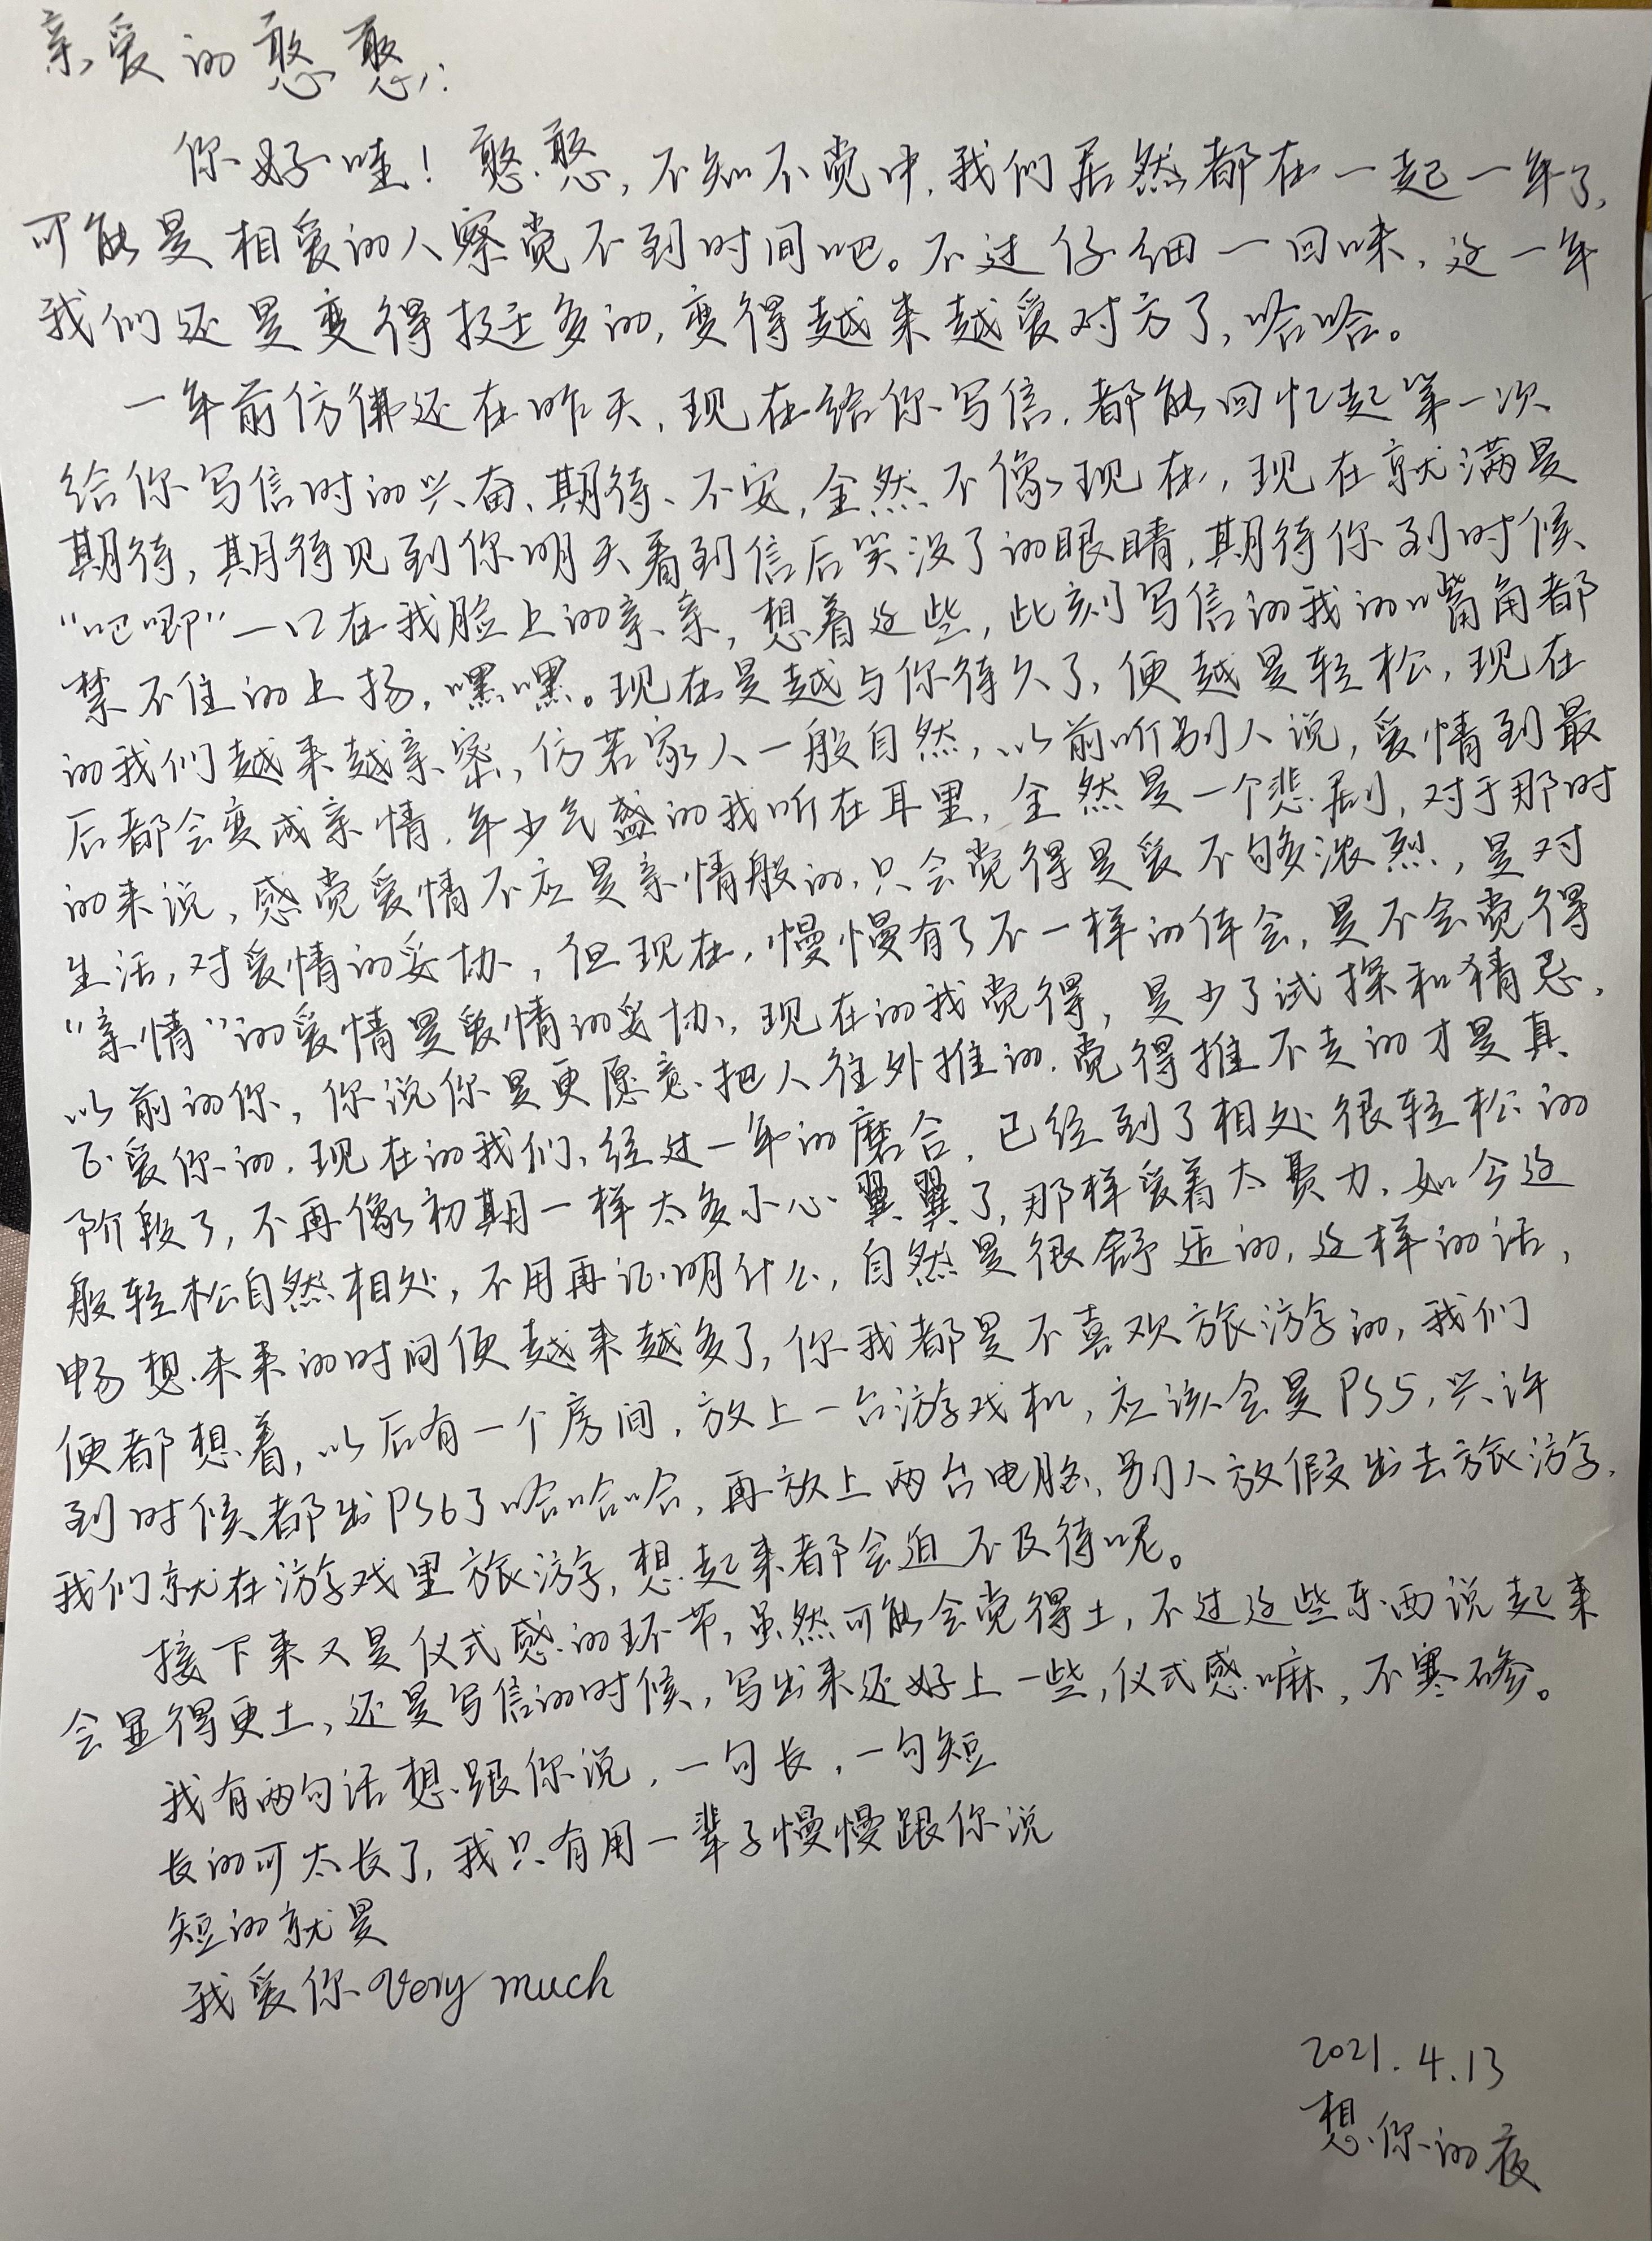 亲爱的憨憨:
你好哇！憨憨,不知不觉中,我们居然都在一起一年了,
可能是相爱的人察觉不到时间吧。不过仔细一回味,这一年
我们还是变得挺多的,变得越来越爱对方了,哈哈。
一年前仿佛还在昨天,现在给你写信,都能回忆起第一次
给你写信时的兴奋、期待、不安,全然不像现在,现在就满是
期待,期待见到你明天看到信后笑没了的眼睛,期待你到时候
“吧唧”一口在我脸上的亲亲,想着这些,此刻写信的我的嘴角都
禁不住的上扬,嘿嘿。现在是越与你待久了,便越是轻松,现在
的我们越来越亲密,仿若家人一般自然,以前听别人说,爱情到最
后都会变成亲情,年少气盛的我听在耳里,全然是一个悲剧,对于那时
的来说,感觉爱情不应是亲情般的,只会觉得是爱不够浓烈,是对
生活,对爱情的妥协,但现在,慢慢有了不一样的体会,是不会觉得
“亲情”的爱情是爱情的妥协,现在的我觉得,是少了试探和猜忌,
以前的你,你说你是更愿意把人往外推的,觉得推不走的才是真
正爱你的,现在的我们,经过一年的磨合,已经到了相处很轻松的
阶段了,不再像初期一样太多小心翼翼了,那样爱着太费力,如今这
般轻松自然相处,不用再证明什么,自然是很舒适的,这样的话,
畅想未来的时间便越来越多了,你我都是不喜欢旅游的,我们
便都想着,以后有一个房间,放上一台游戏机,应该会是PS5,兴许
到时候都出PS6了哈哈哈,再放上两台电脑,别人放假出去旅游,
我们就在游戏里旅游,想起来都会迫不及待呢。
接下来又是仪式感的环节,虽然可能会觉得土,不过这些东西说起来
会显得更土,还是写信的时候,写出来还好上一些,仪式感嘛,不寒碜。
我有两句话想跟你说,一句长,一句短
长的可太长了,我只有用一辈子慢慢跟你说
短的就是
我爱你very much
2021.4.13
想你的夜